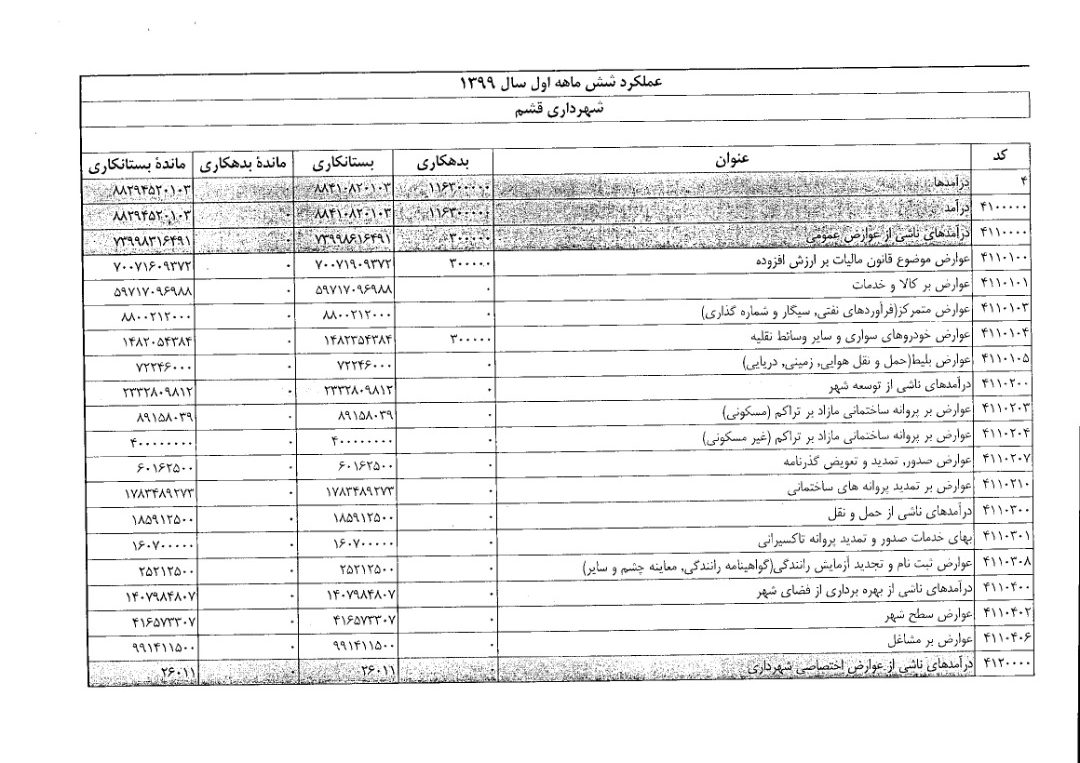 عملکرد شش ماهه اول سال ۱۳۹۹
شهرداری قشم
کد عنوان بدهکاری بستانکاری ماندهٔ بدهکاری ماندهٔ بستانکاری
۴ درآمدها ۱۱۶۳۰۰۰۰۰ ۸۸۴۱۰۸۲۰۱۰۳ ۰ ۸۸۲۹۴۵۲۰۱۰۳
۴۱۰۰۰۰۰ درآمد ۱۱۶۳۰۰۰۰۰ ۸۸۴۱۰۸۲۰۱۰۳ ۰ ۸۸۲۹۴۵۲۰۱۰۳
۴۱۱۰۰۰۰ درآمدهای ناشی از عوارض عمومی ۳۰۰۰۰۰ ۷۳۹۹۸۶۱۶۴۹۱ ۰ ۷۳۹۹۸۳۱۶۴۹۱
۴۱۱۰۱۰۰ عوارض موضوع قانون مالیات بر ارزش افزوده ۳۰۰۰۰۰ ۷۰۰۷۱۹۰۹۳۷۲ ۰ ۷۰۰۷۱۶۰۹۳۷۲
۴۱۱۰۱۰۱ عوارض بر کالا و خدمات ۰ ۵۹۷۱۷۰۹۶۹۸۸ ۰ ۵۹۷۱۷۰۹۶۹۸۸
۴۱۱۰۱۰۳ عوارض متمرکز(فرآوردهای نفتی, سیگار و شماره گذاری) ۰ ۸۸۰۰۲۱۲۰۰۰ ۰ ۸۸۰۰۲۱۲۰۰۰
۴۱۱۰۱۰۴ عوارض خودروهای سواری و سایر وسائط نقلیه ۳۰۰۰۰۰ ۱۴۸۲۳۵۴۳۸۴ ۰ ۱۴۸۲۰۵۴۳۸۴
۴۱۱۰۱۰۵ عوارض بلیط(حمل و نقل هوایی, زمینی, دریایی) ۰ ۷۲۲۴۶۰۰۰ ۰ ۷۲۲۴۶۰۰۰
۴۱۱۰۲۰۰ درآمدهای ناشی از توسعه شهر ۰ ۲۳۳۲۸۰۹۸۱۲ ۰ ۲۳۳۲۸۰۹۸۱۲
۴۱۱۰۲۰۳ عوارض بر پروانه ساختمانی مازاد بر تراکم (مسکونی) ۰ ۸۹۱۵۸۰۳۹ ۰ ۸۹۱۵۸۰۳۹
۴۱۱۰۲۰۴ عوارض بر پروانه ساختمانی مازاد بر تراکم (غیر مسکونی) ۰ ۴۰۰۰۰۰۰۰۰ ۰ ۴۰۰۰۰۰۰۰۰
۴۱۱۰۲۰۷ عوارض صدور, تمدید و تعویض گذرنامه ۰ ۶۰۱۶۲۵۰۰ ۰ ۶۰۱۶۲۵۰۰
۴۱۱۰۲۱۰ عوارض بر تمدید پروانه های ساختمانی ۰ ۱۷۸۳۴۸۹۲۷۳ ۰ ۱۷۸۳۴۸۹۲۷۳
۴۱۱۰۳۰۰ درآمدهای ناشی از حمل و نقل ۰ ۱۸۵۹۱۲۵۰۰ ۰ ۱۸۵۹۱۲۵۰۰
۴۱۱۰۳۰۱ بهای خدمات صدور و تمدید پروانه تاکسیرانی ۰ ۱۶۰۷۰۰۰۰۰ ۰ ۱۶۰۷۰۰۰۰۰
۴۱۱۰۳۰۸ عوارض ثبت نام و تجدید آزمایش رانندگی(گواهینامه رانندگی, معاینه چشم و سایر) ۰ ۲۵۲۱۲۵۰۰ ۰ ۲۵۲۱۲۵۰۰
۴۱۱۰۴۰۰ درآمدهای ناشی از بهره برداری از فضای شهر ۰ ۱۴۰۷۹۸۴۸۰۷ ۰ ۱۴۰۷۹۸۴۸۰۷
۴۱۱۰۴۰۲ عوارض سطح شهر ۰ ۴۱۶۵۷۳۳۰۷ ۰ ۴۱۶۵۷۳۳۰۷
۴۱۱۰۴۰۶ عوارض بر مشاغل ۰ ۹۹۱۴۱۱۵۰۰ ۰ ۹۹۱۴۱۱۵۰۰
۴۱۲۰۰۰۰ درآمدهای ناشی از عوارض اختصاصی شهرداری ۰ ۲۶۰۱۱ ۰ ۲۶۰۱۱